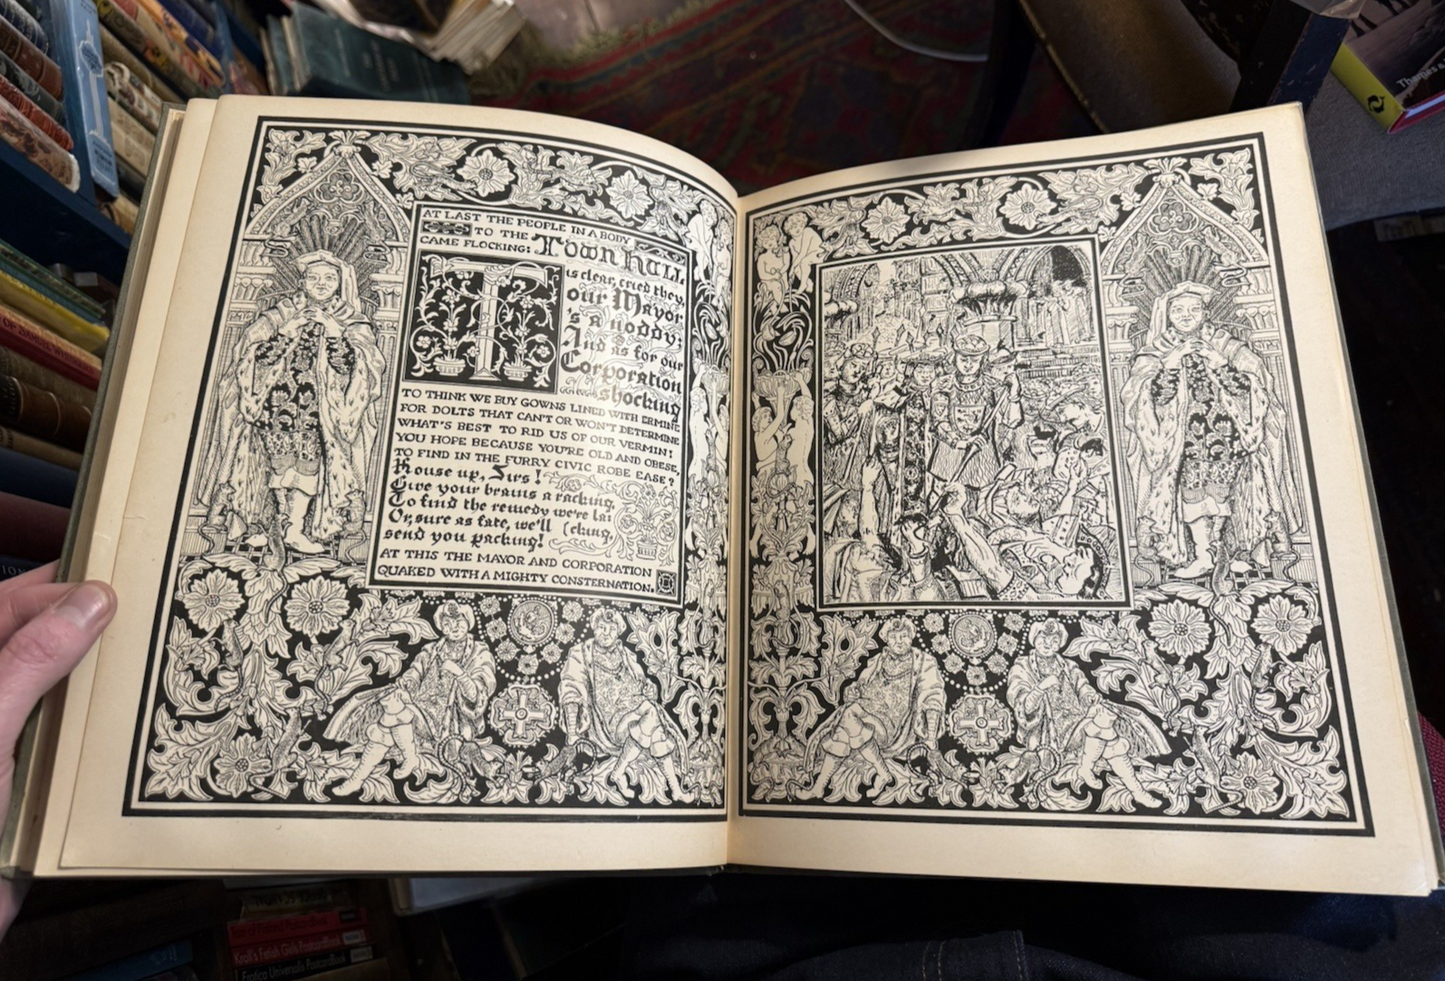 AT LAST THE PEOPLE IN A BODY
TO THE TOWN HALL
CAME FLOCKING:
T
is clear, cried they,
our Mayor
's a noddy;
And as for our
Corporation
shocking
TO THINK WE BUY GOWNS LINED WITH ERMINE
FOR DOLTS THAT CAN'T OR WON'T DETERMINE
WHAT'S BEST TO RID US OF OUR VERMIN!
YOU HOPE BECAUSE YOU'RE OLD AND OBESE,
TO FIND IN THE FURRY CIVIC ROBE EASE?
Rouse up, Sirs!
Give your brains a racking,
To find the remedy we're la:
Or, sure as fate, we'll [cking,
send you packing!
AT THIS THE MAYOR AND CORPORATION
QUAKED WITH A MIGHTY CONSTERNATION.
Thames &
Kroll's Fetish Girls PostcardBook
Erotica Universalis PostcardBook